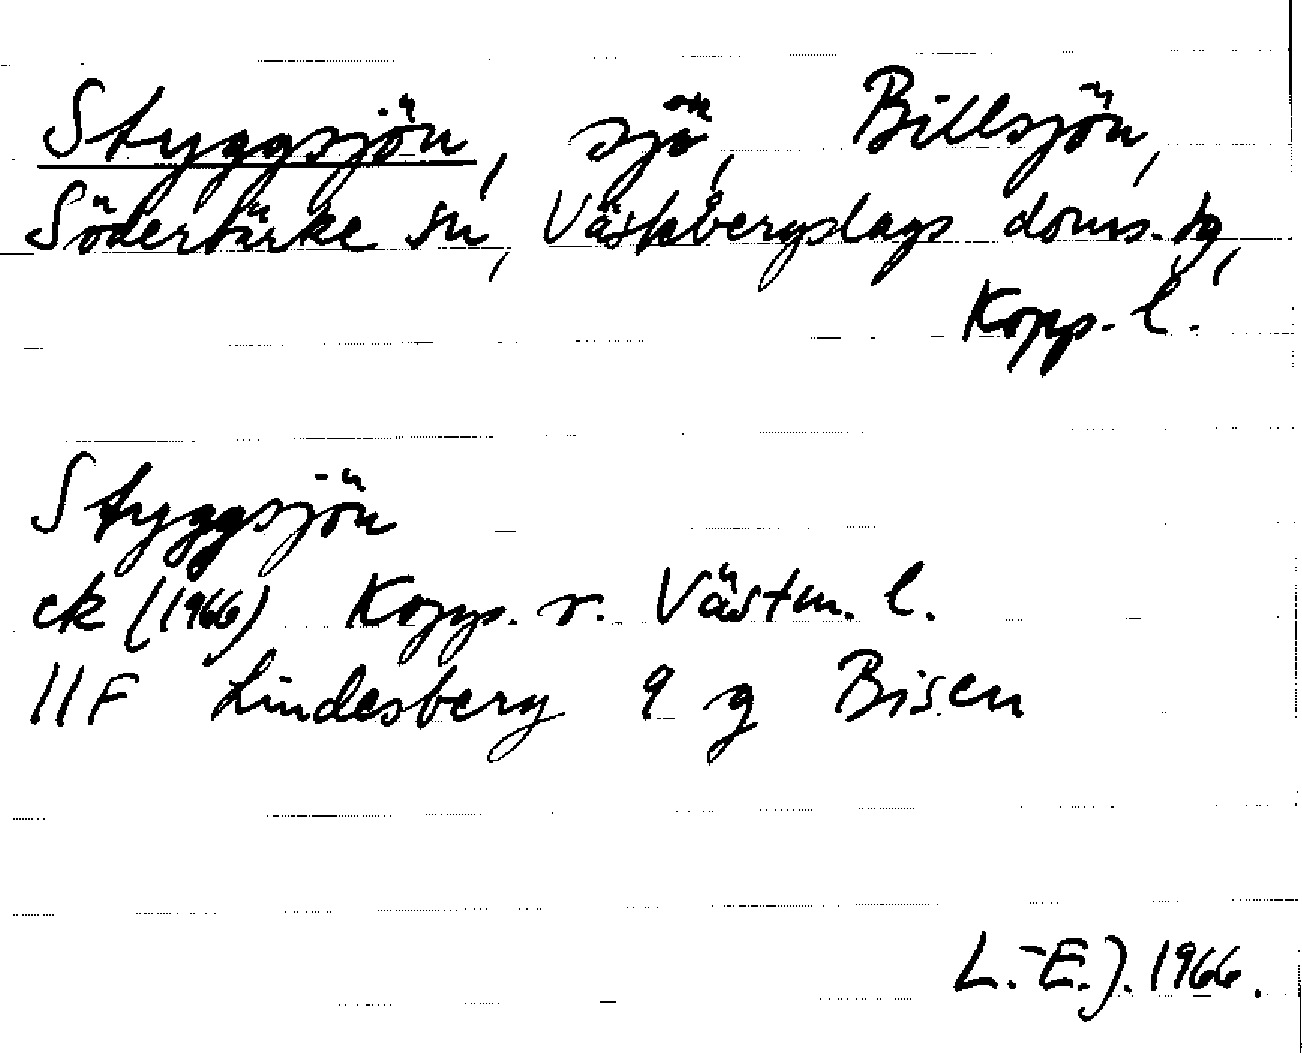 Styggsjön, sjö, Billsjön,
Söderbärke sn, Västerbergslags doms.tg,
Kopp. l.
Styggsjön
ek (1966) Kopp. r. Västm. l.
11F Lindesberg 9 g Bisen
L.-E.J. 1966.